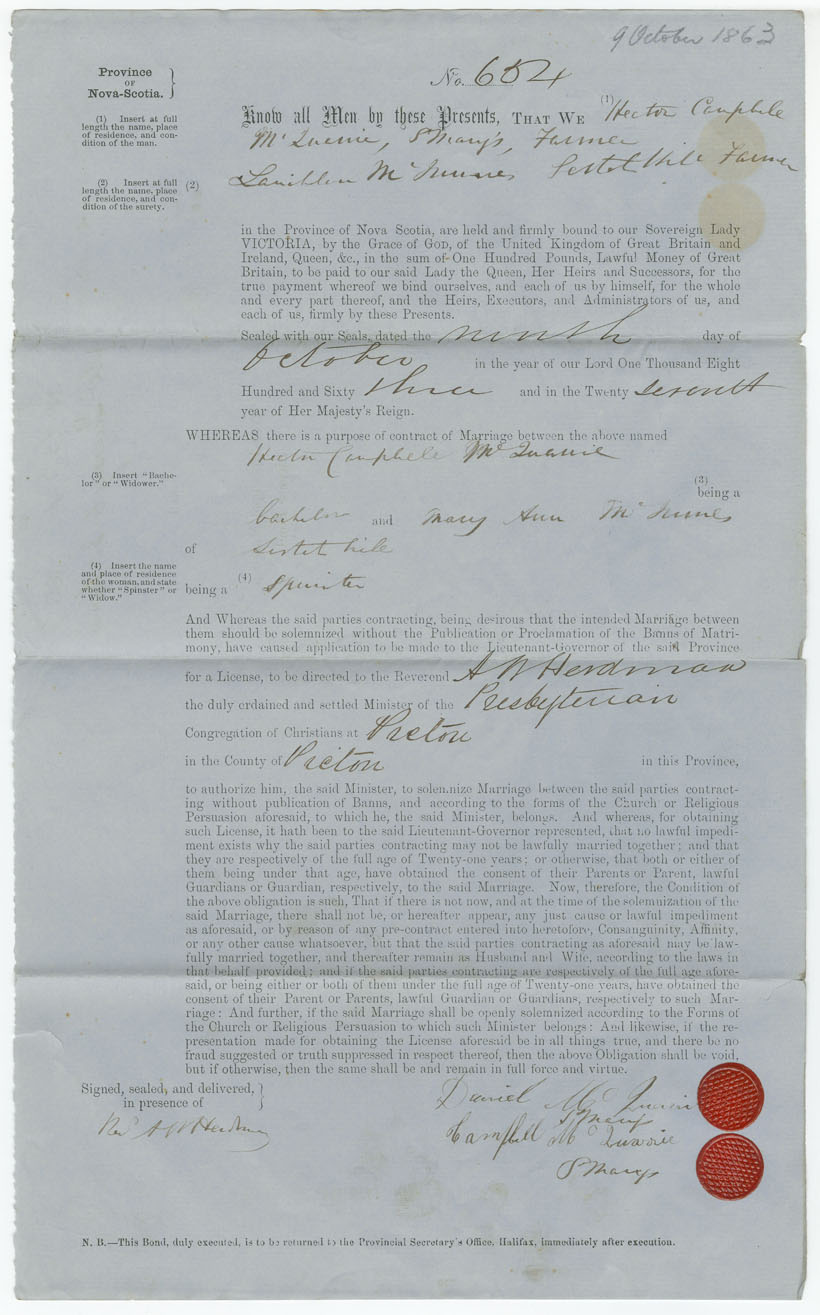 9 October 1863
Province
OF
Nova-Scotia.
No. 654
(1) Insert at full
length the name, place
of residence, and con-
dition of the man.
Know all Men by these Presents, THAT WE (1) Hector Camphele
Mc Quarrie, St Mary's, Farmer
(2) Insert at full
length the name, place
of residence, and con-
dition of the surety.
(2) Lauchlan McInnes Farmer
in the Province of Nova Scotia, are held and firmly bound to our Sovereign Lady
VICTORIA, by the Grace of GOD, of the United Kingdom of Great Britain and
Ireland, Queen, &c., in the sum of One Hundred Pounds, Lawful Money of Great
Britain, to be paid to our said Lady the Queen, Her Heirs and Successors, for the
true payment whereof we bind ourselves, and each of us by himself, for the whole
and every part thereof, and the Heirs, Executors, and Administrators of us, and
each of us, firmly by these Presents.
Sealed with our Seals, dated the ninth day of
October in the year of our Lord One Thousand Eight
Hundred and Sixty three and in the Twenty Seventh
year of Her Majesty's Reign.
WHEREAS there is a purpose of contract of Marriage between the above named
Hector Camphele McQuarrie
(3) Insert "Bache-
lor" or "Widower."
(3)
being a
bachelor and Mary Ann McInnes
of
(4) Insert the name
and place of residence
of the woman, and state
whether "Spinster" or
"Widow."
being a (4) Spinster
And Whereas the said parties contracting, being desirous that the intended Marriage between
them should be solemnized without the Publication or Proclamation of the Banns of Matri-
mony, have caused application to be made to the Lieutenant-Governor of the said Province
for a License, to be directed to the Reverend A W Herdman
the duly ordained and settled Minister of the Presbyterian
Congregation of Christians at Pictou
in the County of Pictou in this Province,
to authorize him, the said Minister, to solemnize Marriage between the said parties contract-
ing without publication of Banns, and according to the forms of the Church or Religious
Persuasion aforesaid, to which he, the said Minister, belongs. And whereas, for obtaining
such License, it hath been to the said Lieutenant-Governor represented, that no lawful impedi-
ment exists why the said parties contracting may not be lawfully married together; and that
they are respectively of the full age of Twenty-one years; or otherwise, that both or either of
them being under that age, have obtained the consent of their Parents or Parent, lawful
Guardians or Guardian, respectively, to the said Marriage. Now, therefore, the Condition of
the above obligation is such, That if there is not now, and at the time of the solemnization of the
said Marriage, there shall not be, or hereafter appear, any just cause or lawful impediment
as aforesaid, or by reason of any pre-contract entered into heretofore, Consanguinity, Affinity,
or any other cause whatsoever, but that the said parties contracting as aforesaid may be law-
fully married together, and thereafter remain as Husband and Wife, according to the laws in
that behalf provided; and if the said parties contracting are respectively of the full age afore-
said, or being either or both of them under the full age of Twenty-one years, have obtained the
consent of their Parent or Parents, lawful Guardian or Guardians, respectively to such Mar-
riage: And further, if the said Marriage shall be openly solemnized according to the Forms of
the Church or Religious Persuasion to which such Minister belongs: And likewise, if the re-
presentation made for obtaining the License aforesaid be in all things true, and there be no
fraud suggested or truth suppressed in respect thereof, then the above Obligation shall be void,
but if otherwise, then the same shall be and remain in full force and virtue.
Signed, sealed, and delivered,
in presence of
Revd A W Herdman
Daniel Mc Quarrie
St Marys
Campbell Mc Quarrie
St Marys
N. B.—This Bond, duly executed, is to be returned to the Provincial Secretary's Office, Halifax, immediately after execution.